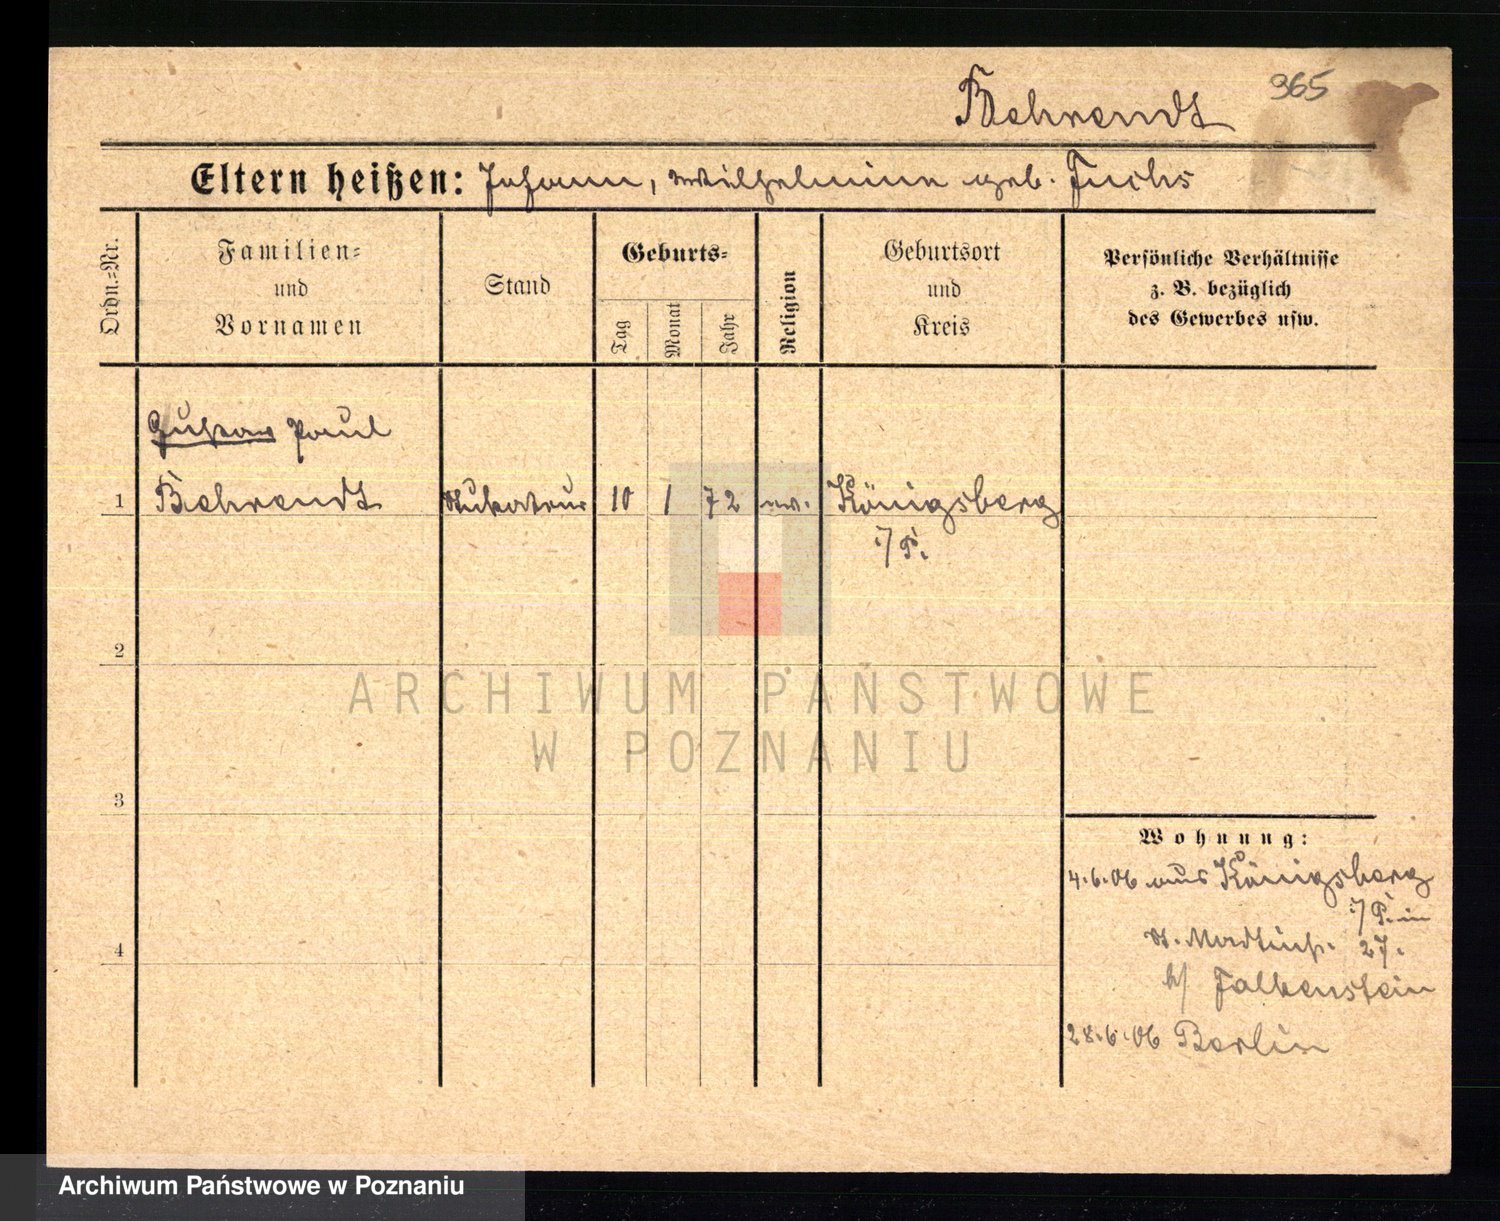 965
Behrendt
Eltern heißen: Johann, Wilhelmine geb. Fuchs
Ordn.=Nr.
Familien=
und
Vornamen
Stand
Geburts=
Tag
Monat
Jahr
Religion
Geburtsort
und
Kreis
Persönliche Verhältnisse
z. B. bezüglich
des Gewerbes usw.
Gustav Paul
1 Behrendt Stukateur 10 1 72 ev. Königsberg
i/P.
2
ARCHIWUM PAŃSTWOWE
W POZNANIU
3
Wohnung:
4.6.06 aus Königsberg
i/P. in
St. 27.
4
b/ Falkenstein
28.6.06 Berlin
Archiwum Państwowe w Poznaniu